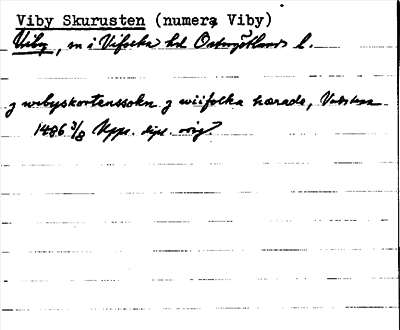 Viby Skurusten (numera Viby)
Viby, sn i Vifolka hd Östergötlands l.
j wibyskortenssokn j wiifolka hærade, Vadstena
1486 3/8 Upps. dipl. orig.